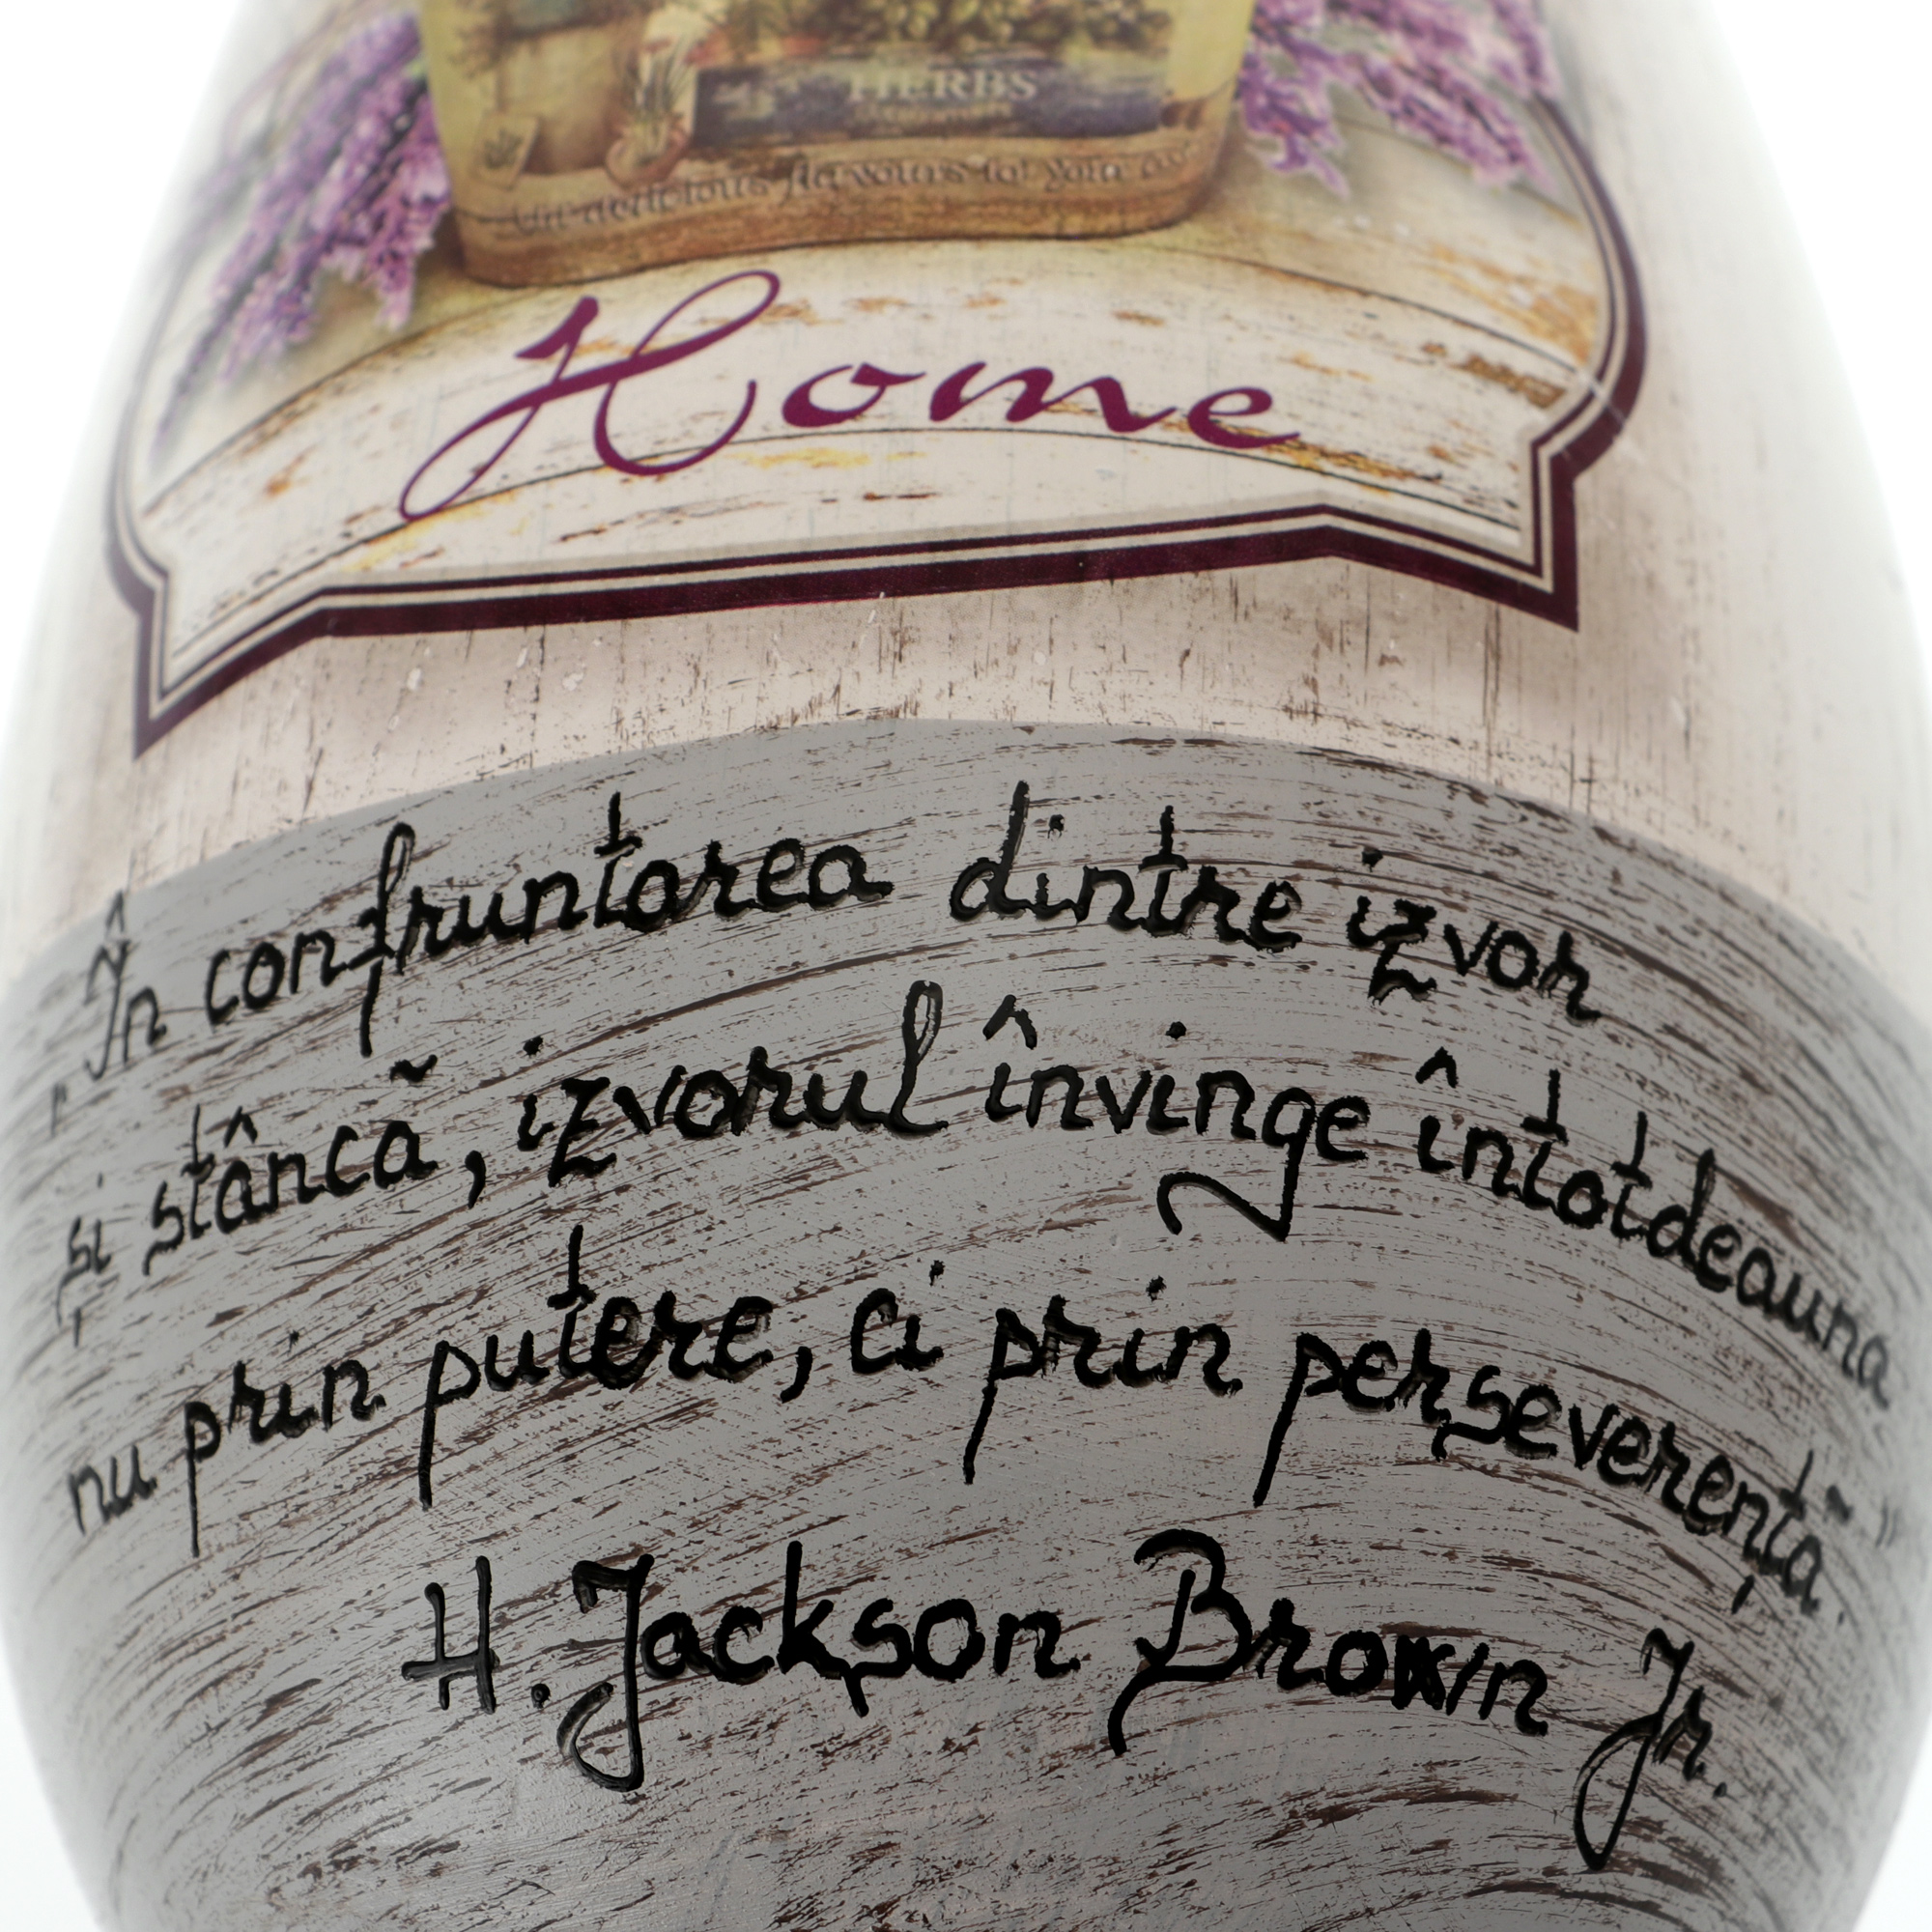 HERBS
delicious flavours for your
Home
„În confruntarea dintre izvor
și stâncă, izvorul învinge întotdeauna
nu prin putere, ci prin perseverență.”
H. Jackson Brown Jr.